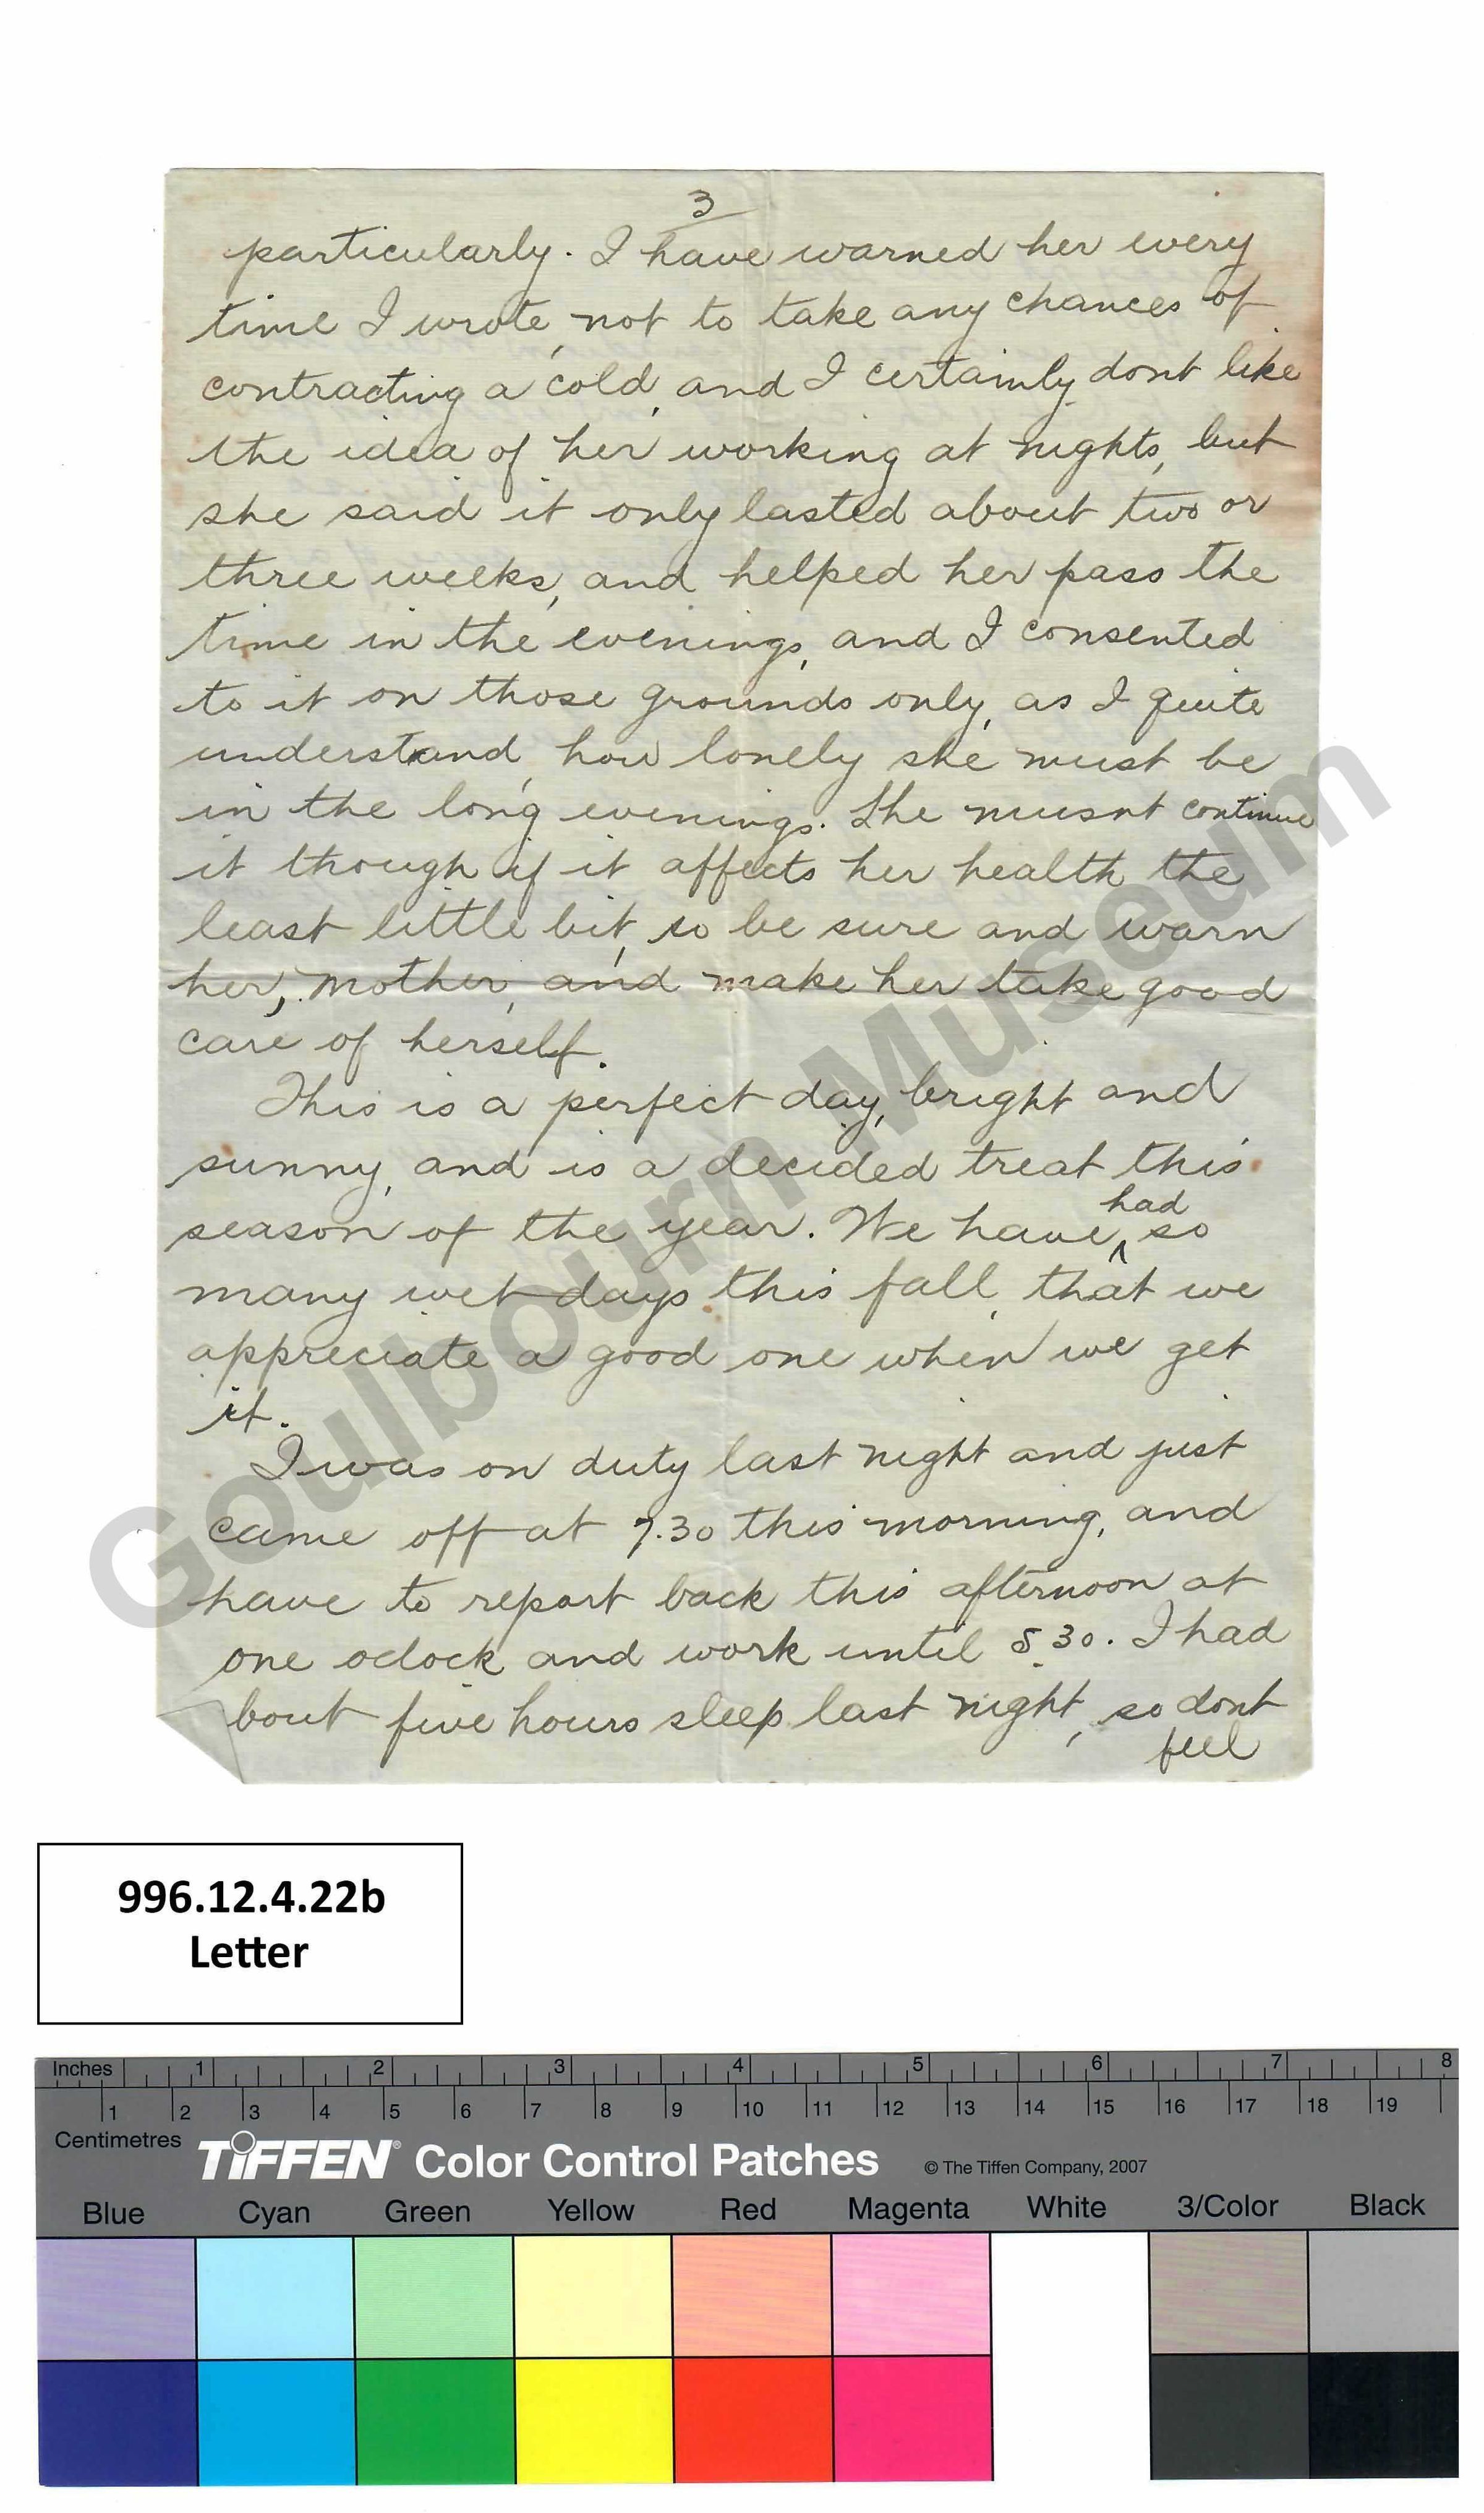 3
particularly. I have warned her every
time I wrote, not to take any chances of
contracting a cold, and I certainly dont like
the idea of her working at nights, but
she said it only lasted about two or
three weeks, and helped her pass the
time in the evenings, and I consented
to it on those grounds only, as I quite
understand, how lonely she must be
in the long evenings. She musnt continue
it though if it affects her health the
least little bit, so be sure and warn
her, mother, and make her take good
care of herself.
This is a perfect day, bright and
sunny, and is a decided treat this
season of the year. We have had so
many wet days this fall, that we
appreciate a good one when we get
it.
I was on duty last night and just
came off at 7.30 this morning, and
have to report back this afternoon at
one oclock and work until 5.30. I had
bout five hours sleep last night, so dont
feel
Goulbourn Museum
996.12.4.22b
Letter
Inches 1 2 3 4 5 6 7 8
1 2 3 4 5 6 7 8 9 10 11 12 13 14 15 16 17 18 19
Centimetres
TIFFEN® Color Control Patches © The Tiffen Company, 2007
Blue Cyan Green Yellow Red Magenta White 3/Color Black